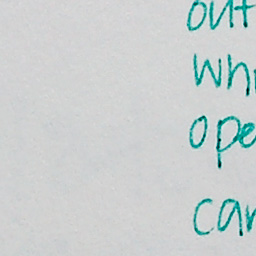 out
whi
ope
can